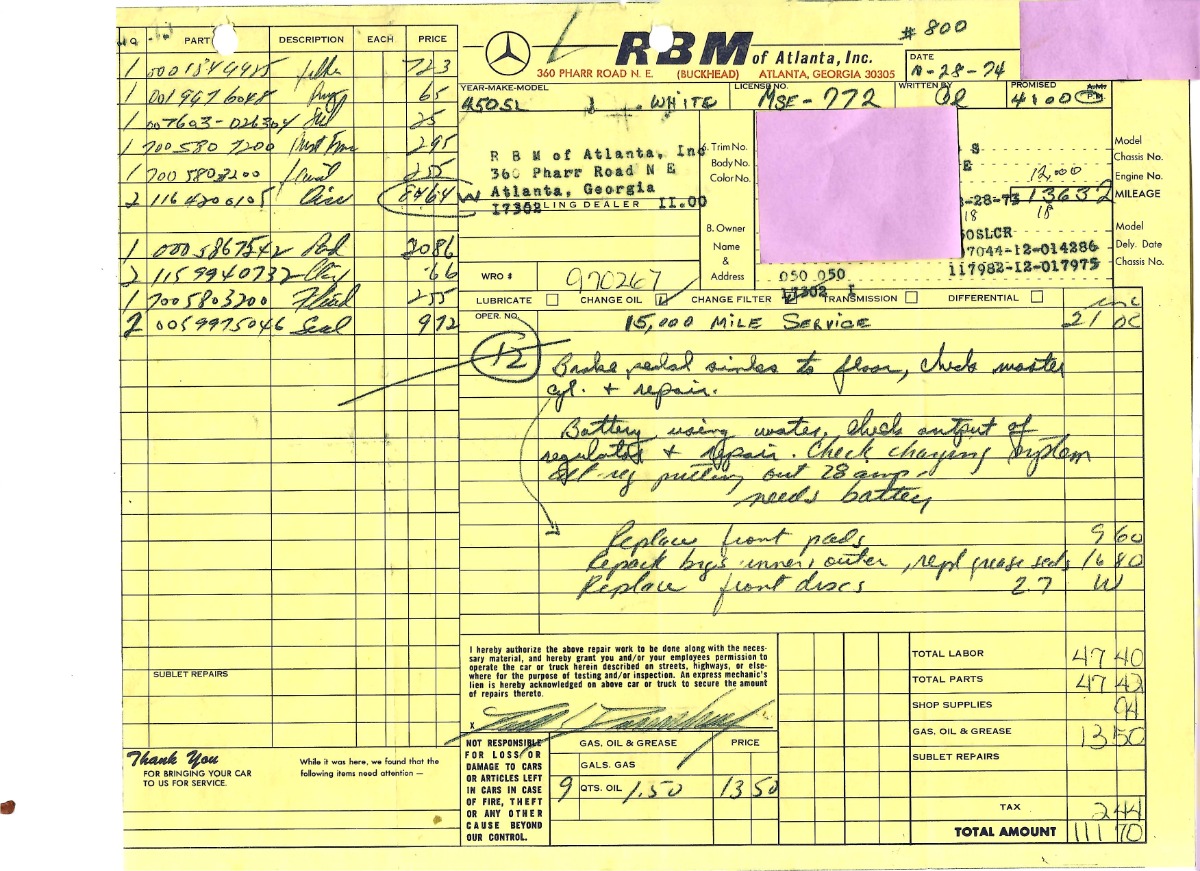 # 800
PART DESCRIPTION EACH PRICE
1 0001844425 723
1 001 997 6048 65
1 007603-026304 25
1 700 580 7200 295
1 700 5803200 255
2 116 4200105 Disc 8464 W
1 000 5867542 Pad 2086
2 115 9940732 66
1 7005803200 Fluid 255
2 0059975046 Seal 972
SUBLET REPAIRS
Thank You
FOR BRINGING YOUR CAR
TO US FOR SERVICE.
While it was here, we found that the
following items need attention —
RBM of Atlanta, Inc.
360 PHARR ROAD N. E. (BUCKHEAD) ATLANTA, GEORGIA 30305
DATE
10-28-74
YEAR-MAKE-MODEL LICENSE NO. WRITTEN BY PROMISED A.M. P.M.
450SL WHITE MSE-772 4:00
R B M of Atlanta, Inc
360 Pharr Road N E
Atlanta, Georgia
17302 LING DEALER II.00
Trim No.
Body No.
Color No.
B. Owner
Name
&
Address
S
E
-28-73
18
50SLCR
7044-12-014286
117982-12-017975
050 050
17302 I
Model
Chassis No.
Engine No.
12,000
MILEAGE 13632
18
Model
Dely. Date
Chassis No.
WRO # 970267
LUBRICATE CHANGE OIL CHANGE FILTER TRANSMISSION DIFFERENTIAL
OPER. NO.
15,000 MILE SERVICE 21 00
12
Brake pedal sinks to floor, check master
cyl. + repair.
Battery using water, check output of
regulator + repair. Check charging system
alt-reg putting out 28 amp.
needs battery
Replace front pads 9 60
Repack brgs inner, outer, repl grease seals 16 80
Replace front discs 2.7 W
I hereby authorize the above repair work to be done along with the neces-
sary material, and hereby grant you and/or your employees permission to
operate the car or truck herein described on streets, highways, or else-
where for the purpose of testing and/or inspection. An express mechanic's
lien is hereby acknowledged on above car or truck to secure the amount
of repairs thereto.
X
NOT RESPONSIBLE
FOR LOSS OR
DAMAGE TO CARS
OR ARTICLES LEFT
IN CARS IN CASE
OF FIRE, THEFT
OR ANY OTHER
CAUSE BEYOND
OUR CONTROL.
GAS, OIL & GREASE PRICE
GALS. GAS
9 QTS. OIL 1.50 13 50
TOTAL LABOR 47 40
TOTAL PARTS 47 42
SHOP SUPPLIES 94
GAS, OIL & GREASE 13 50
SUBLET REPAIRS
TAX 2 44
TOTAL AMOUNT 111 70